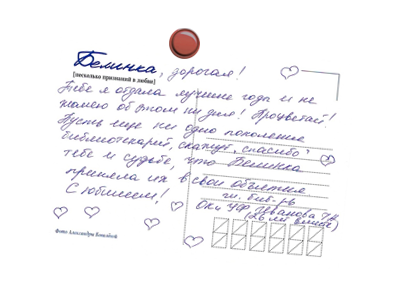 Белинка, дорогая!
[несколько признаний в любви]
Тебе я отдала лучшие годы и не
жалею об этом ни дня! Процветай!
Пусть еще ни одно поколение
библиотекарей, скажут „спасибо"
тебе и судьбе, что Белинка
приняла их в свои объятия
С юбилеем!
гл. биб-рь
Иванова Т.В.
Фото Александры Копыловой